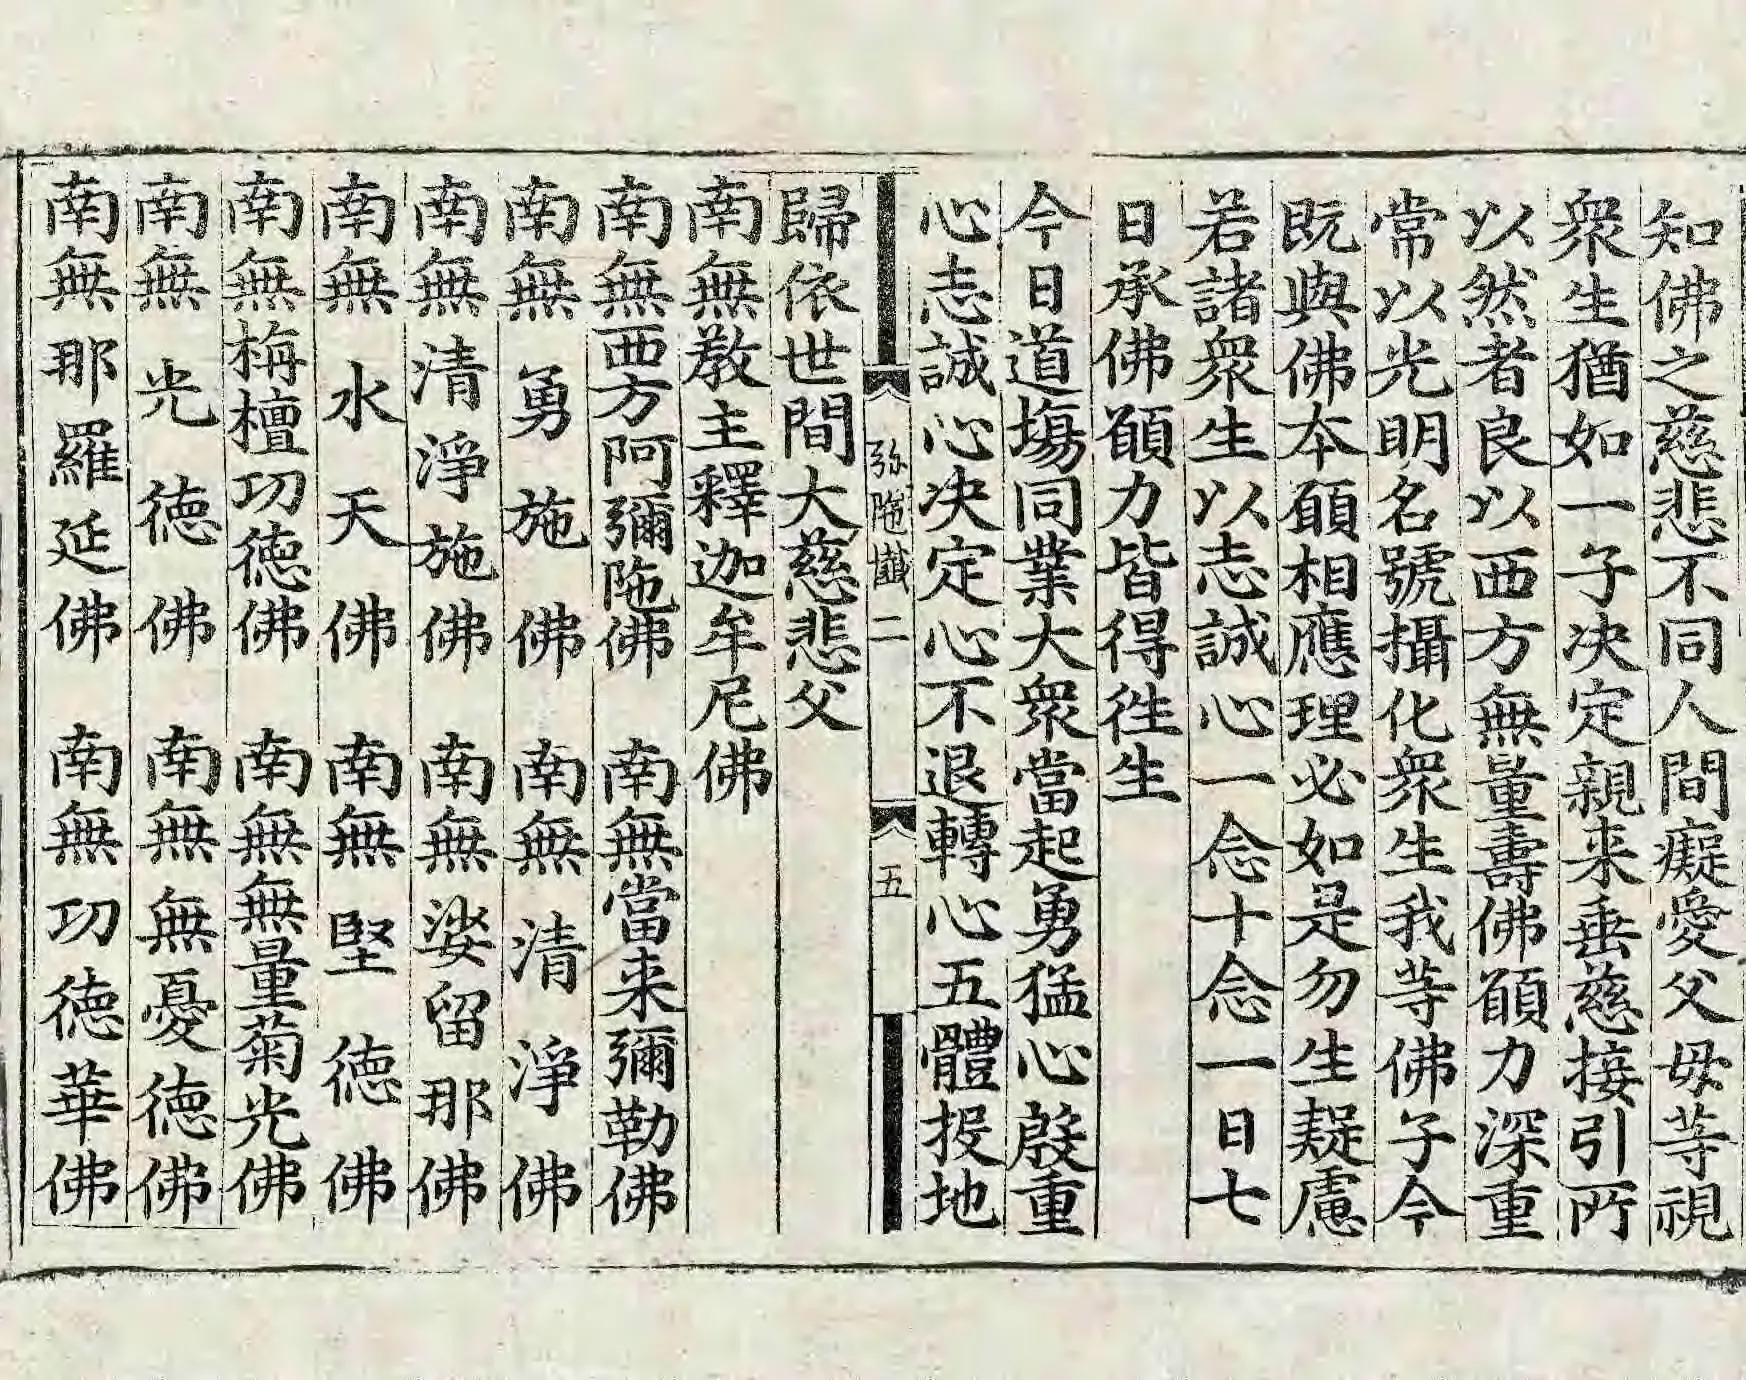 知佛之慈悲不同人間癡愛父母等視
衆生猶如一子决定親来垂慈接引所
以然者良以西方無量壽佛願力深重
常以光明名號攝化衆生我等佛子今
既與佛本願相應理必如是勿生疑慮
若諸衆生以志誠心一念十念一日七
日承佛願力皆得徃生
今日道塲同業大衆當起勇猛心慇重
心志誠心决定心不退轉心五體投地
弥陁懺二 五
歸依世間大慈悲父
南無教主釋迦牟尼佛
南無西方阿彌陁佛 南無當来彌勒佛
南無勇施佛 南無清淨佛
南無清淨施佛 南無娑留那佛
南無水天佛 南無堅徳佛
南無栴檀功徳佛 南無無量菊光佛
南無光徳佛 南無無憂徳佛
南無那羅延佛 南無功徳華佛